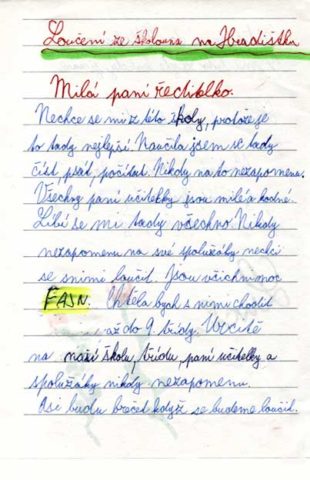 Loučení ze školouna na Hradištku
Milá paní ředitelko.
Nechce se mi z této školy, protože je
to tady nejlepší. Naučila jsem se tady
číst, psát, počítat. Nikdy na to nezapomenu.
Všechny paní učitelky jsou milé a hodné.
Líbí se mi tady všechno. Nikdy
nezapomenu na své spolužáky nechci
se s nimi loučit. Jsou všichni moc
FAJN. Chtěla bych s nimi chodit
až do 9. třídy. Určitě
na naší školu, třídu, paní učitelky a
spolužáky nikdy nezapomenu.
Asi budu brečet když se budeme loučit.